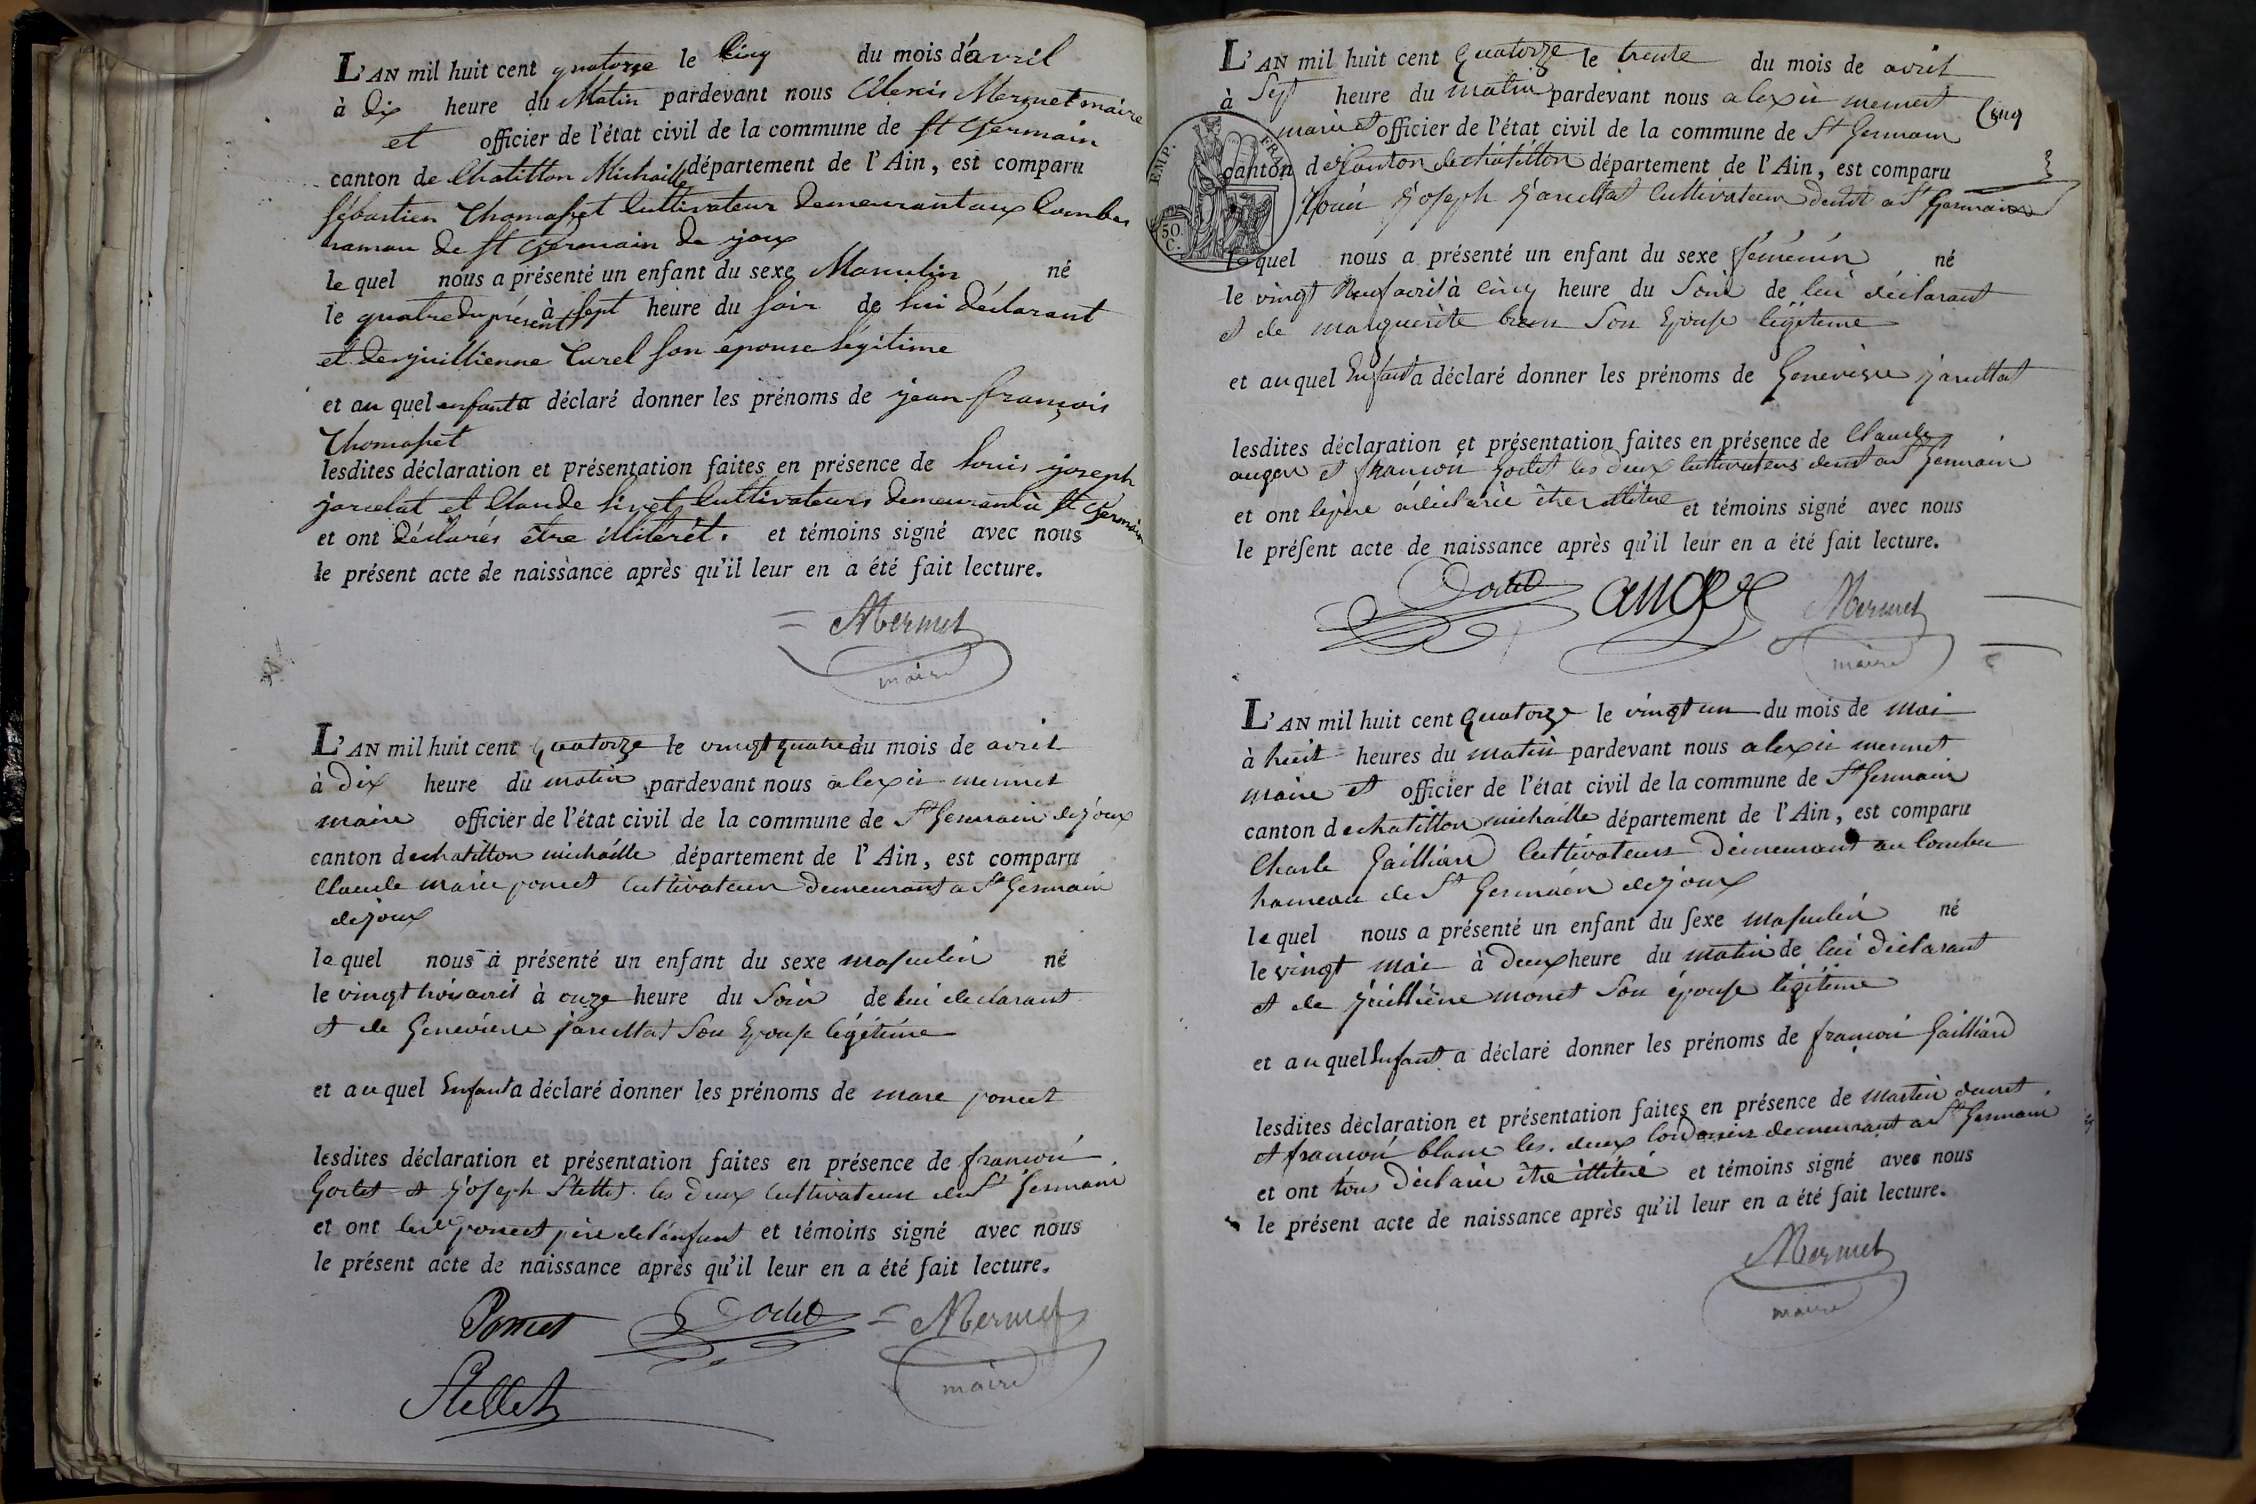 L'AN mil huit cent quatorze le Cinq du mois d'avril
à Dix heure du Matin pardevant nous Alexis Mermet maire
et officier de l'état civil de la commune de St Germain
canton de Chatillon Michaille département de l'Ain, est comparu
Sébastien Thomasset Cultivateur Demeurant aux Combes
hameau de St Germain de joux
le quel nous a présenté un enfant du sexe Masculin né
le quatre du présent à sept heure du soir de lui Déclarant
et de juillienne Curel son épouse légitime
et au quel enfant a déclaré donner les prénoms de jean françois
Thomasset
lesdites déclaration et présentation faites en présence de Louis joseph
et Claude Cultivateurs Demeurant à St Germain
et ont Déclarés être illiterét. et témoins signé avec nous
le présent acte de naissance après qu'il leur en a été fait lecture.
Mermet
maire
L'AN mil huit cent quatorze le vingt quatre du mois de avril
à Dix heure du matin pardevant nous alexis mermet
maire officier de l'état civil de la commune de St Germain de joux
canton de chatillon michaille département de l'Ain, est comparu
Claude marie poncet Cultivateur demeurant a St Germain
de joux
le quel nous a présenté un enfant du sexe masculin né
le vingt trois avril à onze heure du Soir de lui declarant
et de Genevieve Son Epouse légitime
et au quel Enfant a déclaré donner les prénoms de marc poncet
lesdites déclaration et présentation faites en présence de françois
Godet et joseph Stellet les deux Cultivateurs de St Germain
et ont poncet père de l'enfant et témoins signé avec nous
le présent acte de naissance après qu'il leur en a été fait lecture.
Poncet Godet Mermet
maire
Stellet
L'AN mil huit cent quatorze le trente du mois de avril
à Sept heure du matin pardevant nous alexis mermet
maire et officier de l'état civil de la commune de St Germain
canton de Canton de chatillon département de l'Ain, est comparu
Louis joseph Cultivateur a St Germain
Cinq
EMP. FRA
50.
C.
le quel nous a présenté un enfant du sexe féminin né
le vingt Neuf avril à Cinq heure du Soir de lui déclarant
et de marguerite Son Epouse légitime
et au quel Enfant a déclaré donner les prénoms de Genevieve
lesdites déclaration et présentation faites en présence de Claude
auger et françois godet les deux Cultivateurs a St Germain
et ont le père a déclaré être illitéré et témoins signé avec nous
le présent acte de naissance après qu'il leur en a été fait lecture.
Godet auger Mermet
maire
L'AN mil huit cent quatorze le vingt un du mois de mai
à huit heures du matin pardevant nous alexis mermet
maire et officier de l'état civil de la commune de St Germain
canton de chatillon michaille département de l'Ain, est comparu
Charle Gailliard Cultivateur Demeurant au Combes
hameau de St Germain de joux
le quel nous a présenté un enfant du sexe masculin né
le vingt mai à deux heure du matin de lui déclarant
et de juillienne monet Son épouse légitime
et au quel Enfant a déclaré donner les prénoms de françois Gailliard
lesdites déclaration et présentation faites en présence de martin
et françois blanc les deux demeurant a St Germain
et ont tous déclaré être illitéré et témoins signé avec nous
le présent acte de naissance après qu'il leur en a été fait lecture.
Mermet
maire